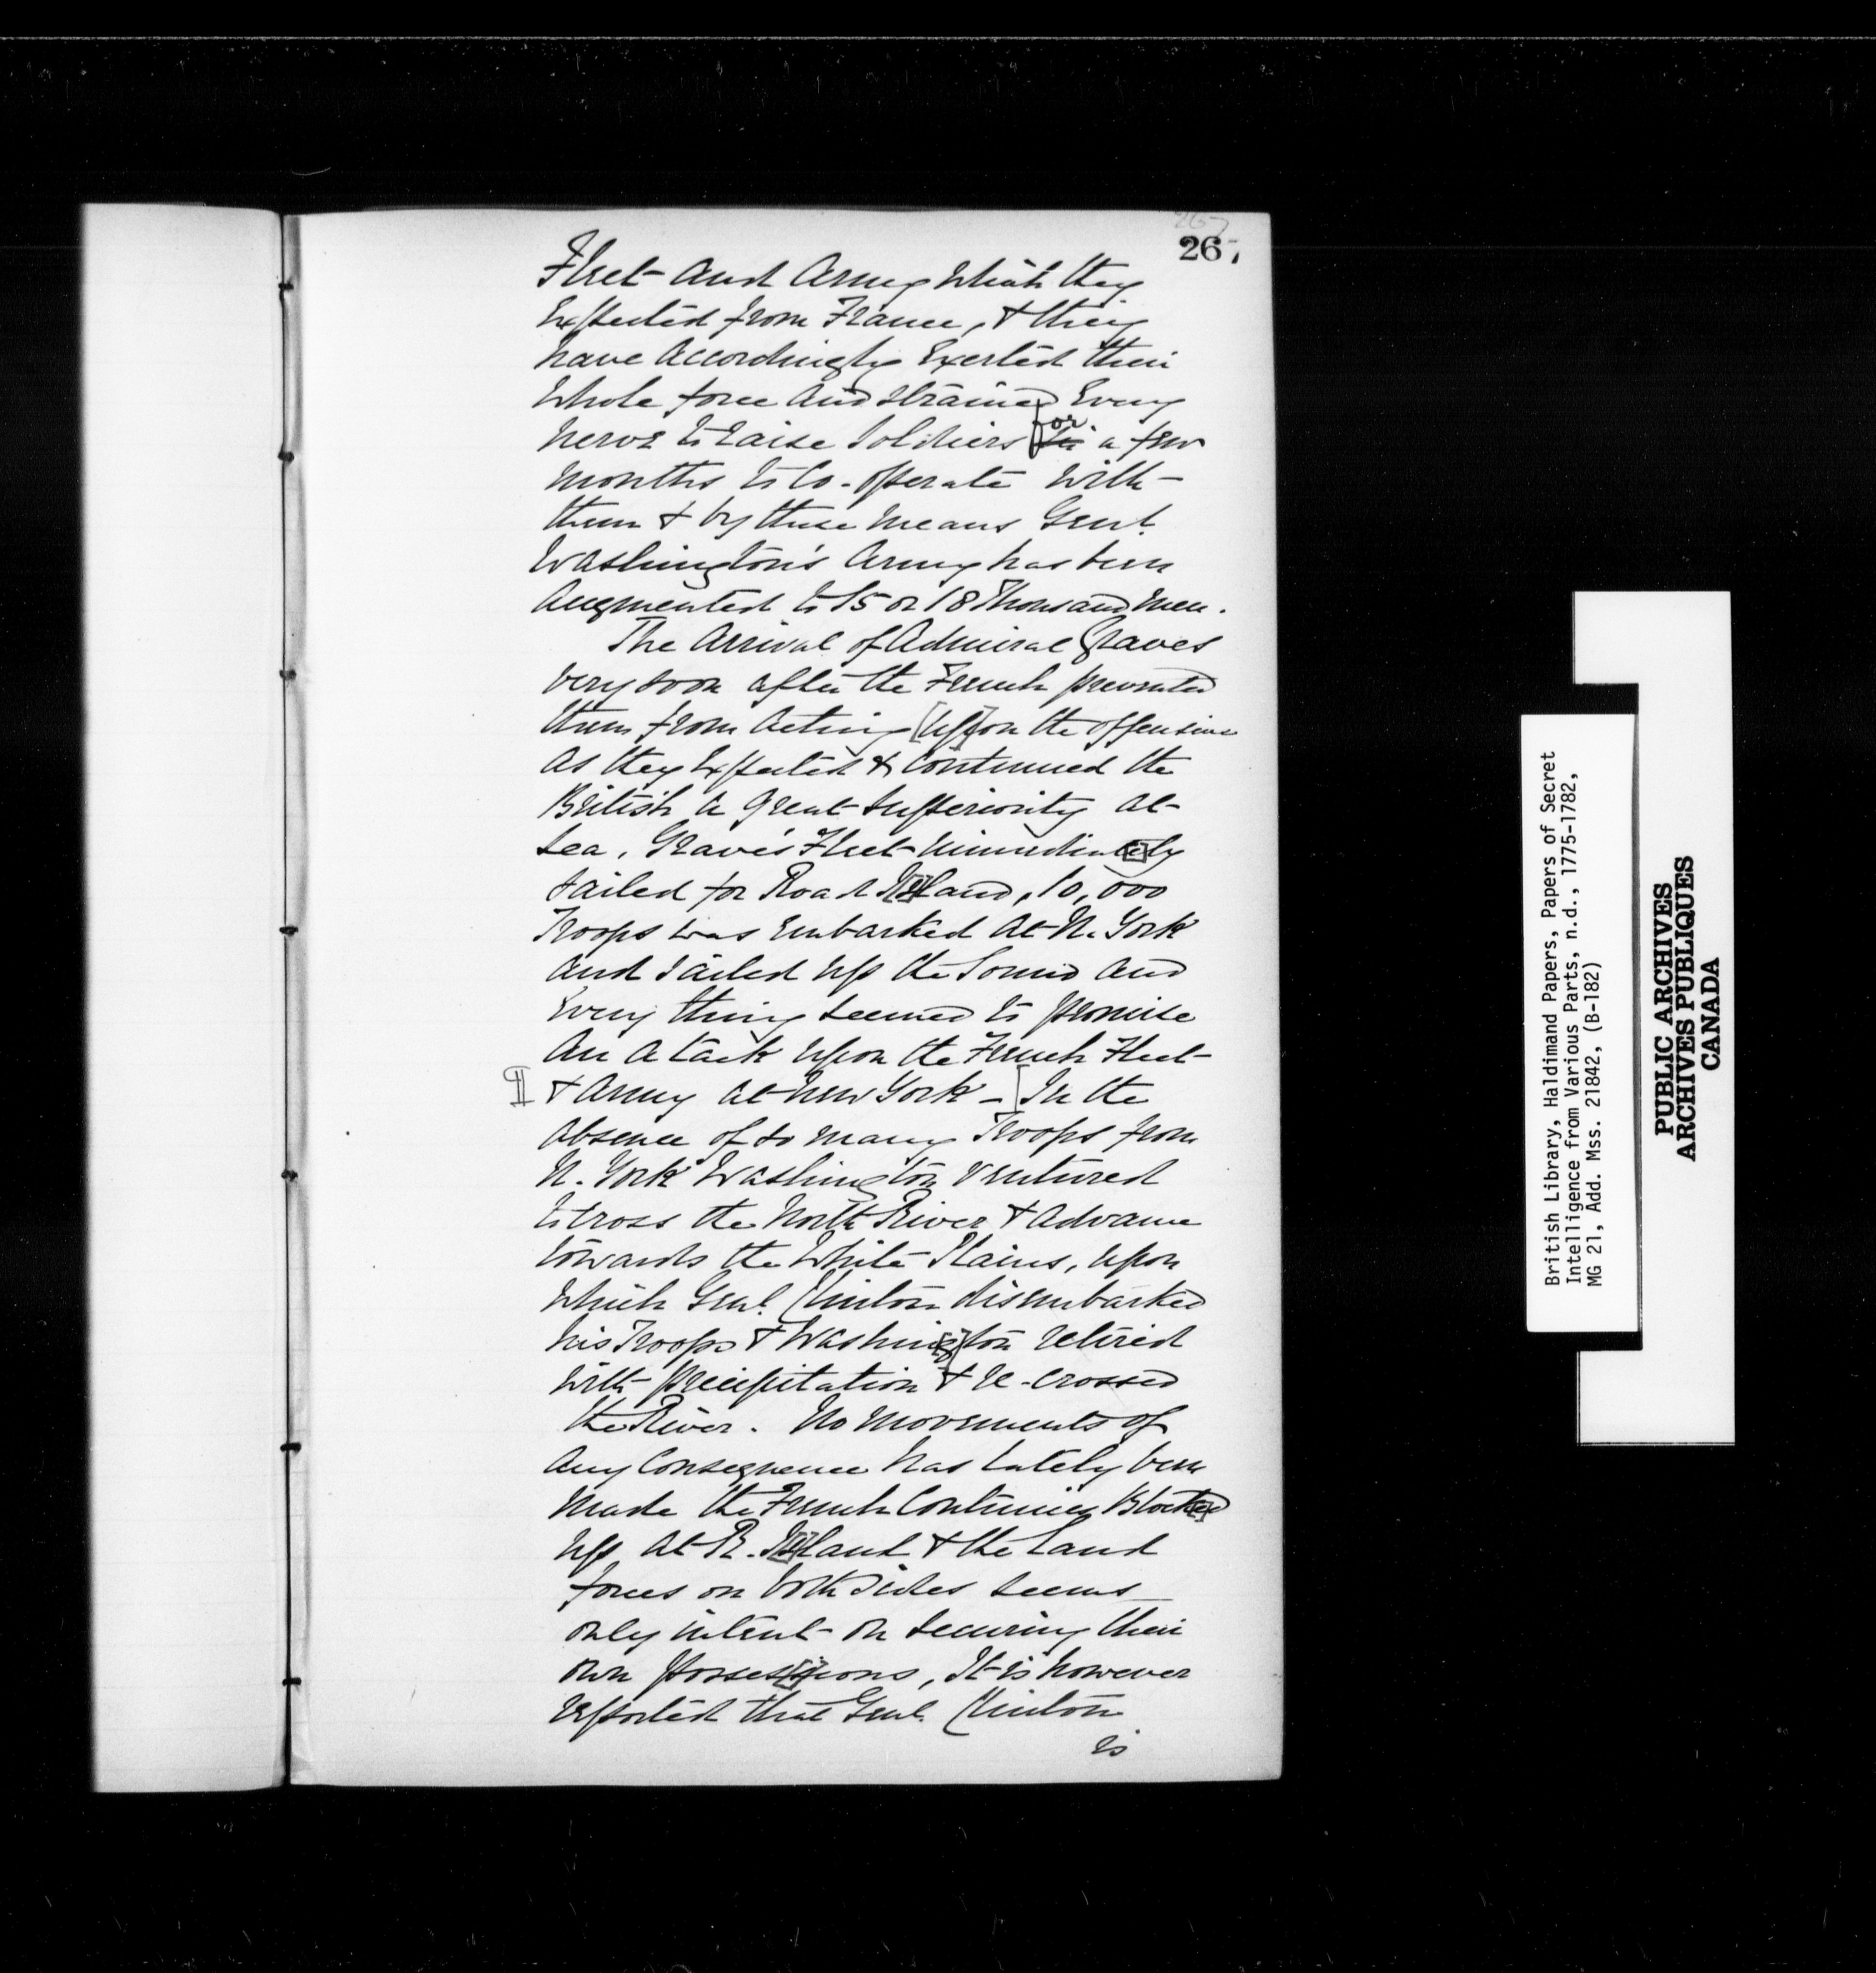 267
267
Fleet and Army which they
Expected from France, & they
have Accordingly Exerted their
Whole force and strained Every
Nerve to raise Soldiers for in a few
Months to Co-operate with
them & by these means Genl.
Washington's Army has been
Augmented to 15 or 18 Thousand Men.
The Arrival of Admiral Graves
very soon after the French prevented
them from Acting [up]on the offensive
As they Expected & Continued the
British a great Superiority at
Sea. Grave's Fleet immediat[e]ly
sailed for Road I[s]land, 10,000
Troops was embarked at N. York
and sailed up the Sound and
Every thing seemed to promise
An Attack upon the French Fleet
¶ & Army at New York – [In the
absence of so many Troops from
N. York Washington ventured
to cross the North River & Advance
towards the White Plains, upon
Which Genl. Clinton disembarked
his Troops & Washin[g]ton retired
with precipitation & re-crossed
the River. No movements of
Any Consequence has lately been
Made the French Continues Block[e]d
up at R. I[s]land & the Land
forces on both sides seems
only intent on securing their
own posses[s]ions, It is however
reported that Genl. Clinton
is
British Library, Haldimand Papers, Papers of Secret
Intelligence from Various Parts, n.d., 1775-1782,
MG 21, Add. Mss. 21842, (B-182)
PUBLIC ARCHIVES
ARCHIVES PUBLIQUES
CANADA